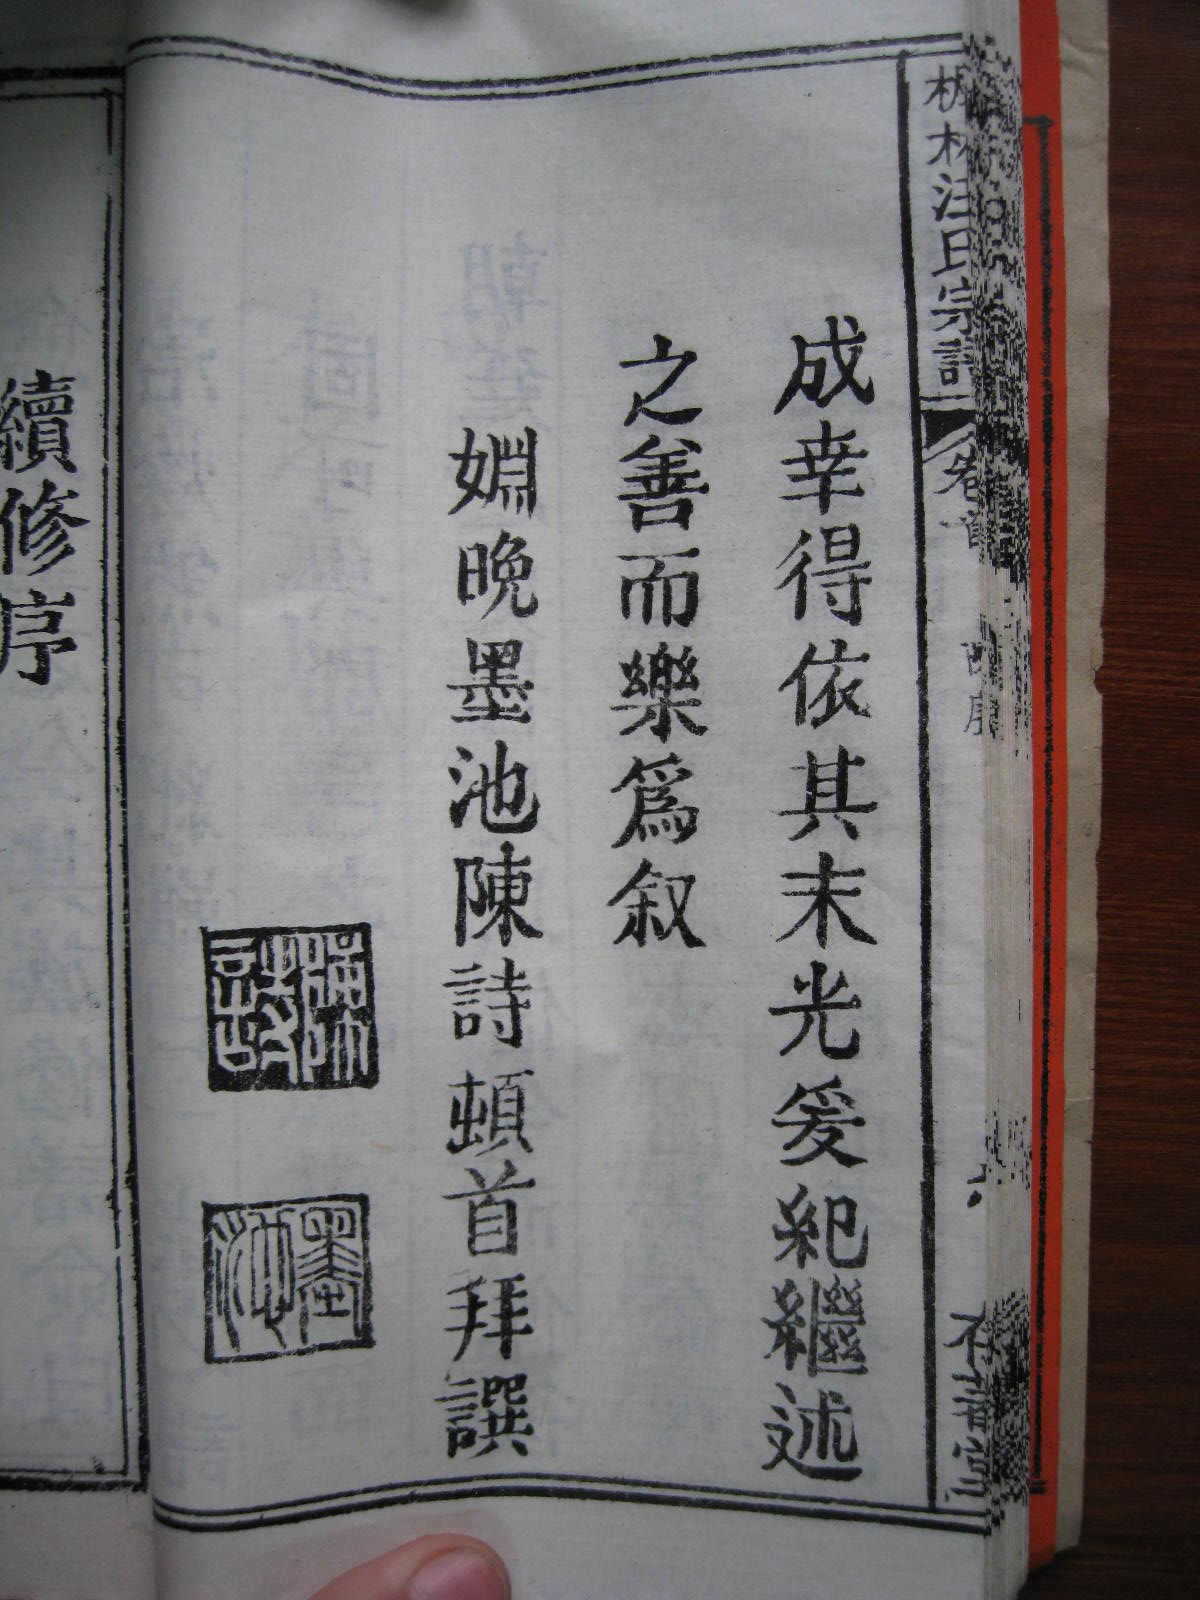 林汪氏宗譜
卷首
成幸得依其末光爰紀繼述
之善而樂爲叙
姻晚墨池陳詩頓首拜譔
墨池
續修序